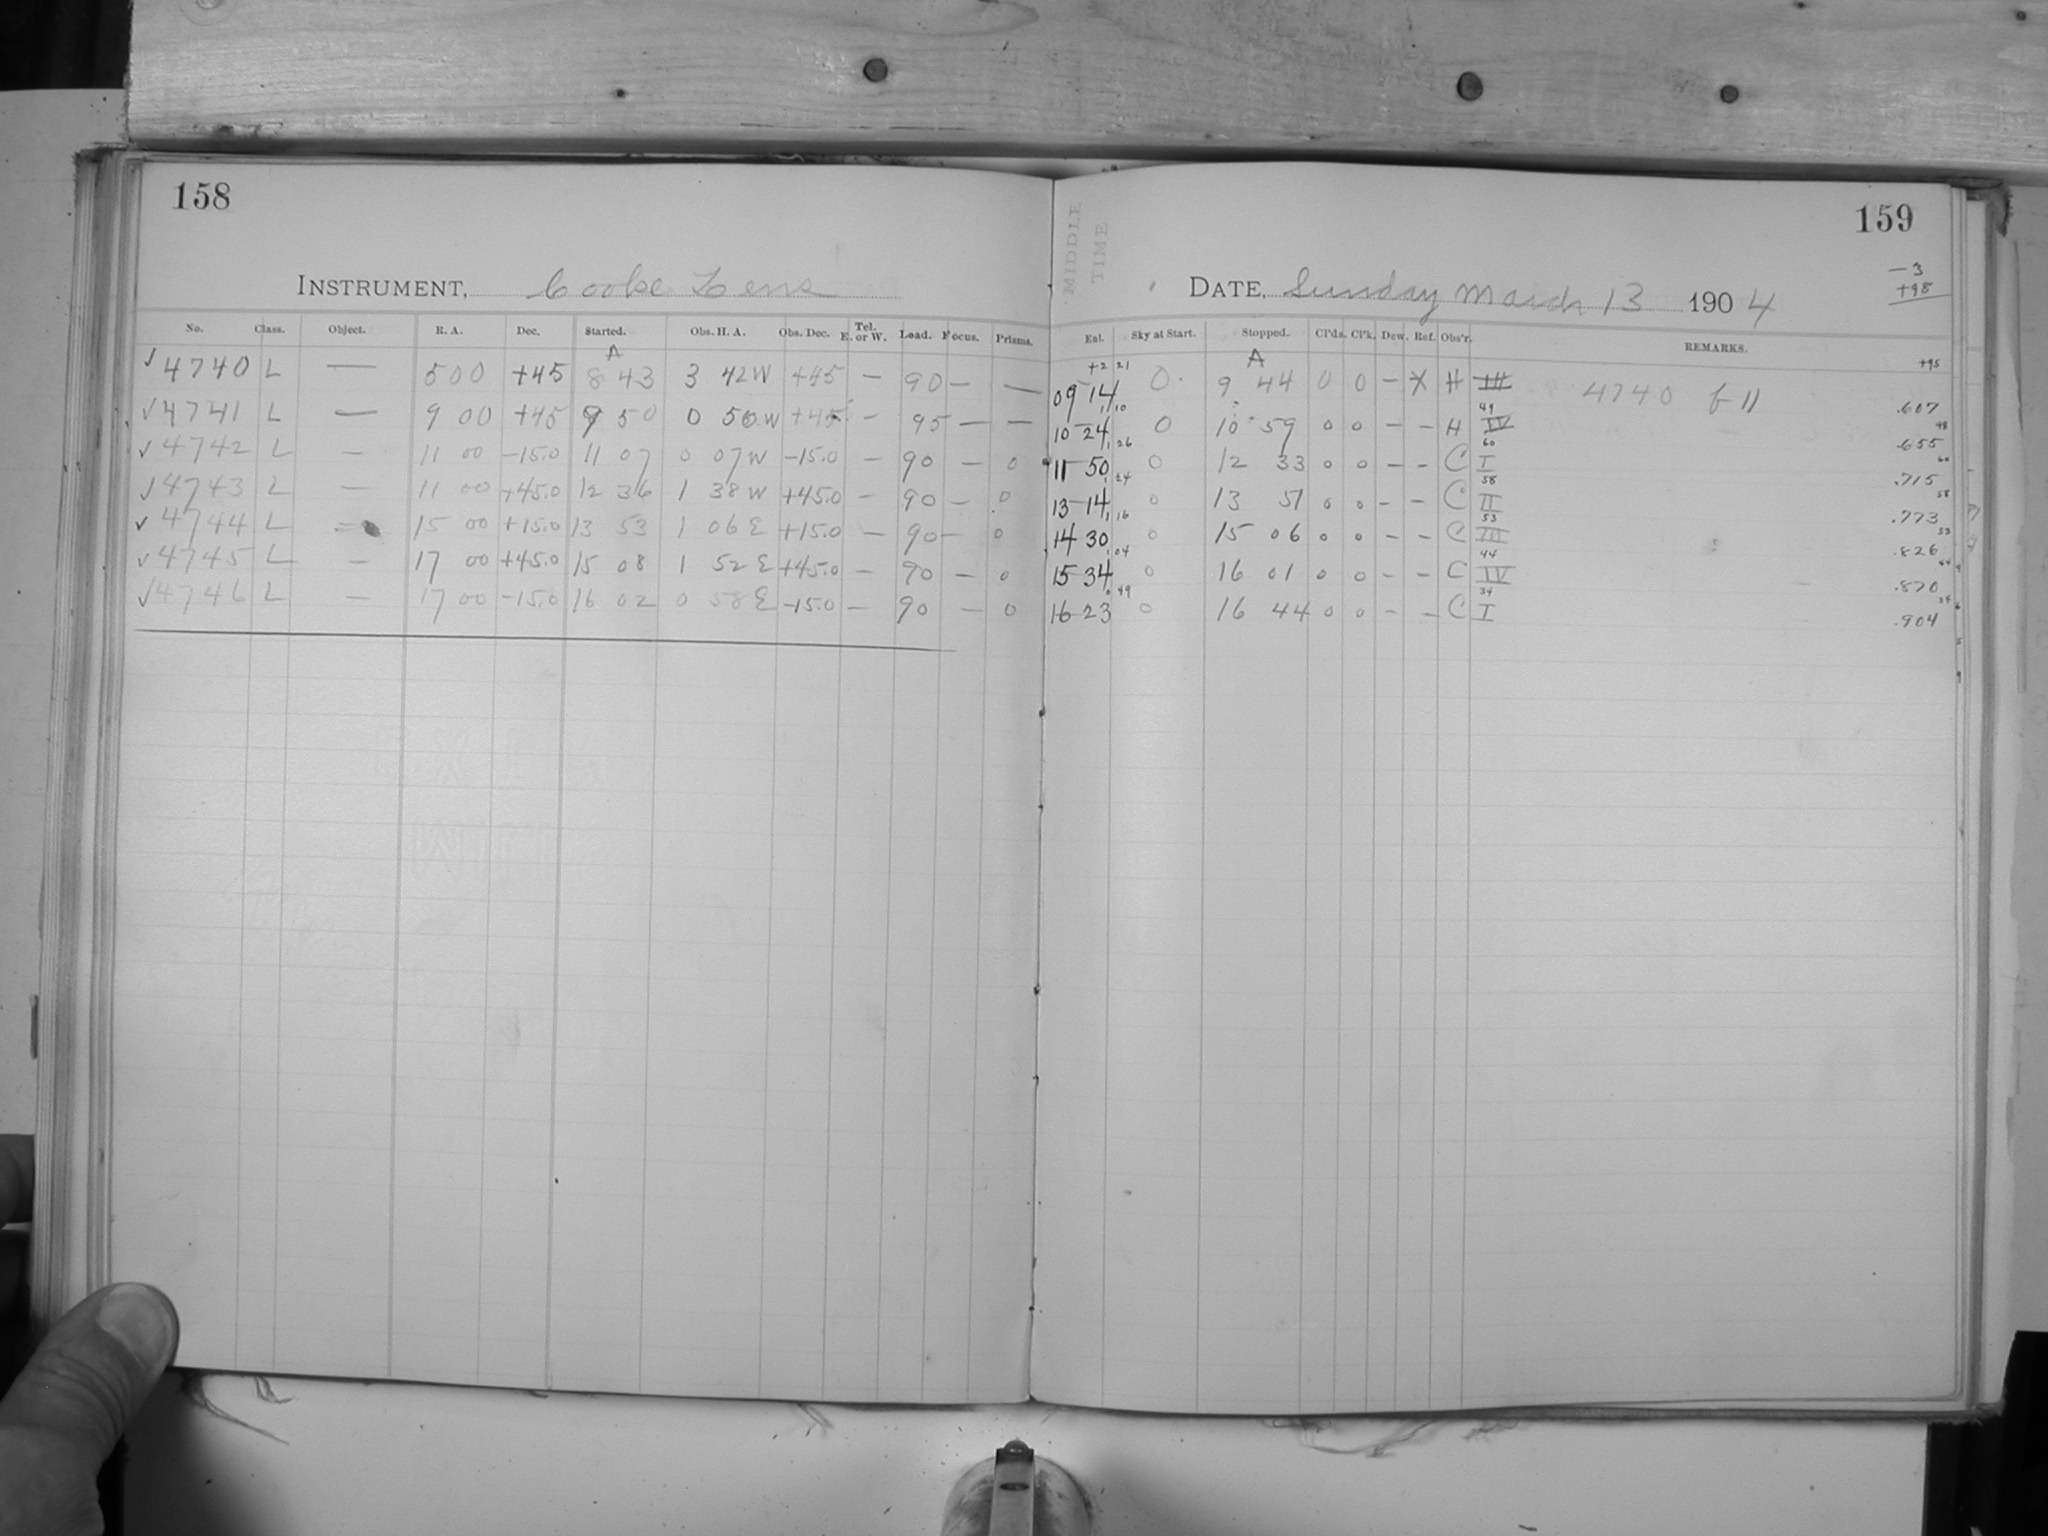 158
INSTRUMENT, Cooke Lens
No. Class. Object. R. A. Dec. Started. Obs. H. A. Obs. Dec. Tel. E. or W. Load. Focus. Prisms.
A
✓ 4740 L — 5 00 +45 8 43 3 42 W +45 — 90 — —
✓ 4741 L — 9 00 +45 9 50 0 50 W +45 — 95 — —
✓ 4742 L — 11 00 -15.0 11 07 0 07 W -15.0 — 90 — 0
✓ 4743 L — 11 00 +45.0 12 36 1 38 W +45.0 — 90 — 0
✓ 4744 L — 15 00 +15.0 13 53 1 06 E +15.0 — 90 — 0
✓ 4745 L — 17 00 +45.0 15 08 1 52 E +45.0 — 90 — 0
✓ 4746 L — 17 00 -15.0 16 02 0 58 E -15.0 — 90 — 0
159
MIDDLE
TIME
DATE, Sunday March 13 1904
-3
+98
Eal. Sky at Start. Stopped. Cl'ds. Cl'k. Dew. Ref. Obs'r. REMARKS.
+2 21 A +95
09 14 0 9 44 0 0 — X H III 4740 f 11 .607
1 10 49 48
10 24 0 10 59 0 0 — — H IV .655
1 26 60 60
11 50 0 12 33 0 0 — — C I .715
1 24 58 58
13 14 0 13 51 0 0 — — C II .773
1 16 53 53
14 30 0 15 06 0 0 — — C III .826
1 04 44 44
15 34 0 16 01 0 0 — — C IV .870
0 49 34 34
16 23 0 16 44 0 0 — — C I .904